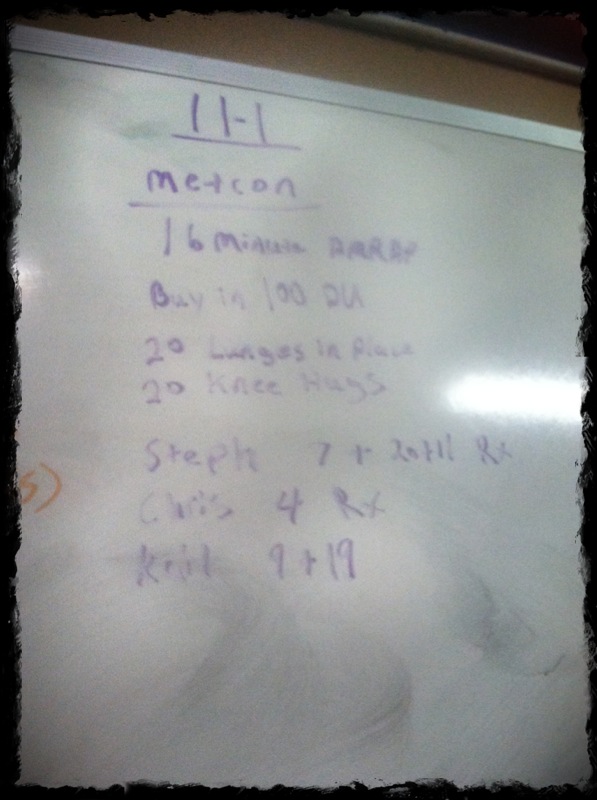 11-1
metcon
16 minute AMRAP
Buy in 100 DU
20 Lunges in Place
20 Knee Hugs
Steph 7 + 20+11 Rx
5)
Chris 4 Rx
9+19